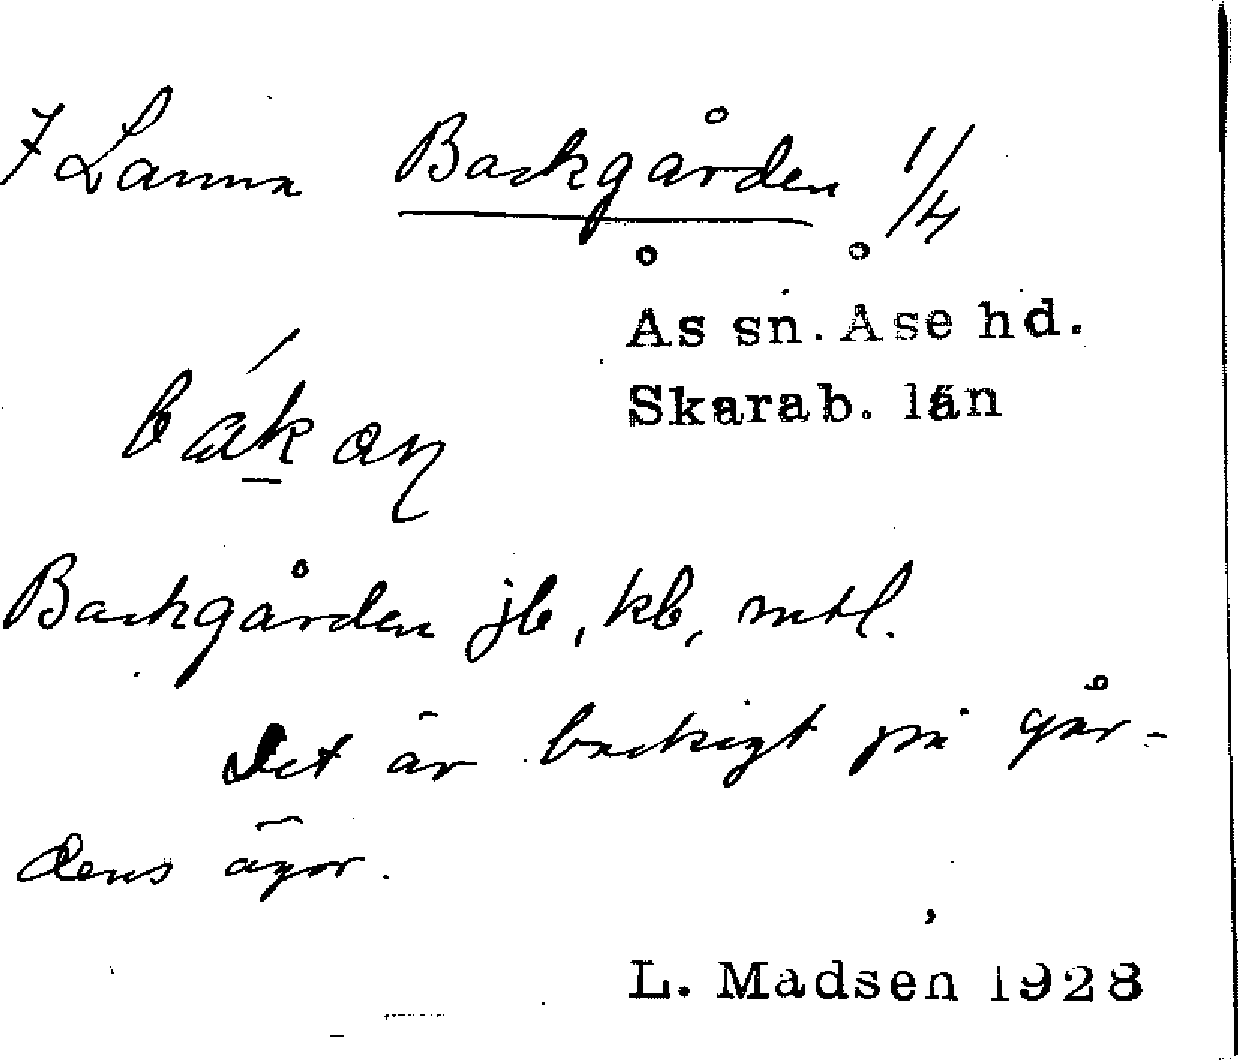 I Lanna Backgården 1/4
Ås sn. Åse hd.
Skarab. län
Backgården jb, kb, mtl.
Det är backigt på går-
dens ägor.
L. Madsen 1928